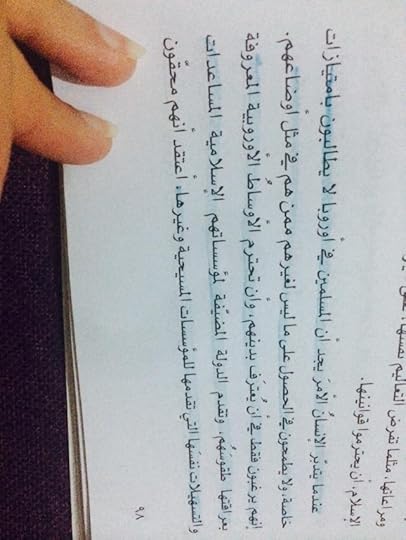 ومراعاتها، مثلما تفرض التعاليم نفسها على
الإسلام، أن يحترموا قوانينها.
عندما يتدبّر الإنسانُ الأمرَ يجد أن المسلمين في أوروبا لا يطالبون بامتيازات
خاصة، ولا يطمحون في الحصول على ما ليس لغيرهم ممن هم في مثل أوضاعهم.
إنهم يرغبون فقط في أن يُعترف بدينهم، وأن تحترم الأوساطُ الأوروبية المعروفة
بعراقتها، طقوسَهم، وتقدم الدولة المضيّفة لمؤسساتهم الإسلامية المساعدات
والتسهيلات نفسها التي تقدمها للمؤسسات المسيحية وغيرها. أعتقد أنهم محقّون
٩٨